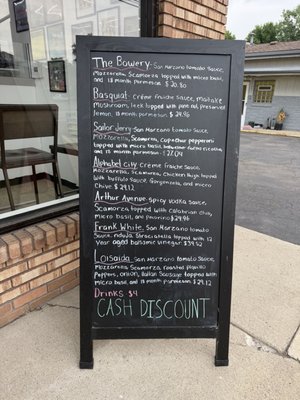 The Bowery- San Marzano tomato sauce,
Mozzarella, Scamorza topped with micro basil
and 18 month parmesan $ 20.80
Basquiat- Crème Fraîche Sauce, Maitake
Mushroom, leek topped with
lemon, 18 month parmesan $ 24.96
Sailor Jerry- San Marzano tomato Sauce,
Mozzarella, Scamorza, cup+char pepperoni
topped with
and 18 month parmesan $ 27.04
Alphabet City- Crème Fraîche sauce,
Mozzarella, Scamorza, Chicken thigh topped
with Gorgonzola, and micro
Chive $ 29.12
Arthur Avenue- Spicy Vodka Sauce,
Scamorza topped with Calabrian chili,
Micro basil, and Pecorino $ 24.96
Frank White- San Marzano tomato
Sauce, nduja, Stracciatella topped with 12
Year aged balsamic vinegar $ 39.52
Loisaida- San Marzano tomato Sauce,
Mozzarella, Scamorza, roasted
Peppers, onion, Italian Sausage topped with
micro basil, and 18 month parmesan $ 29.12
Drinks $4
CASH DISCOUNT